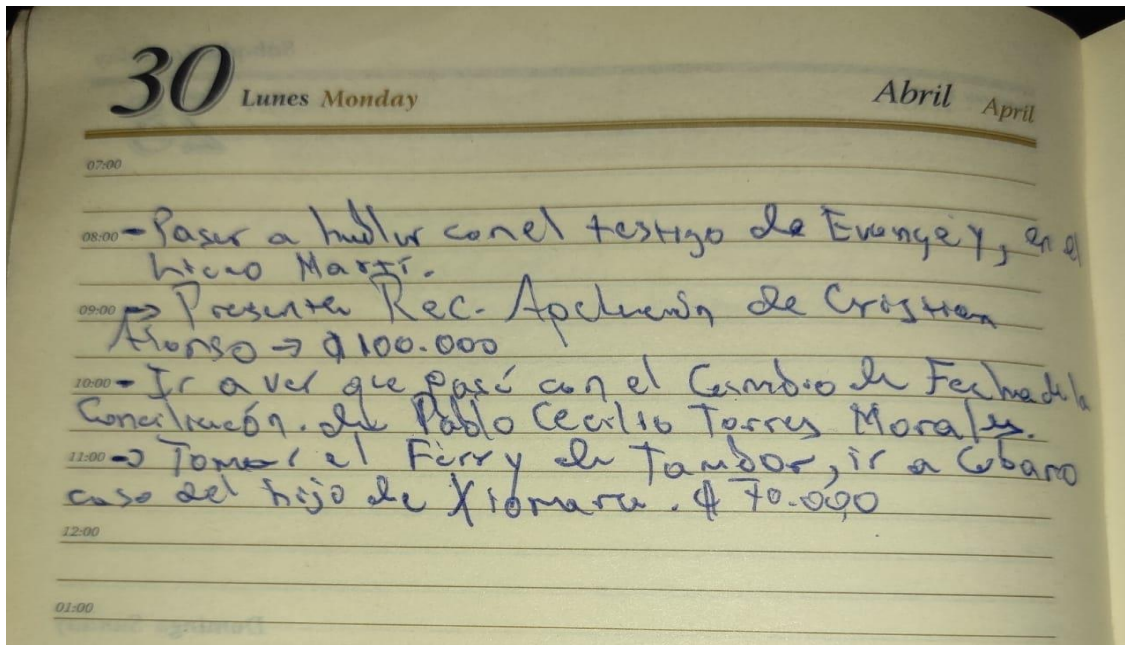 30 Lunes Monday Abril April
07:00
08:00 - Pasar a hablar con el testigo de Evangey, en el
Liceo Martí.
09:00 → Presentar Rec. Apelación de Cristian
Alonso → ₡100.000
10:00 - Ir a ver que pasó con el Cambio de Fecha de la
Conciliación. de Pablo Cecilio Torres Morales.
11:00 → Tomar el Ferry de Tambor, ir a Cobano
caso del hijo de Xiomara. ₡70.000
12:00
01:00